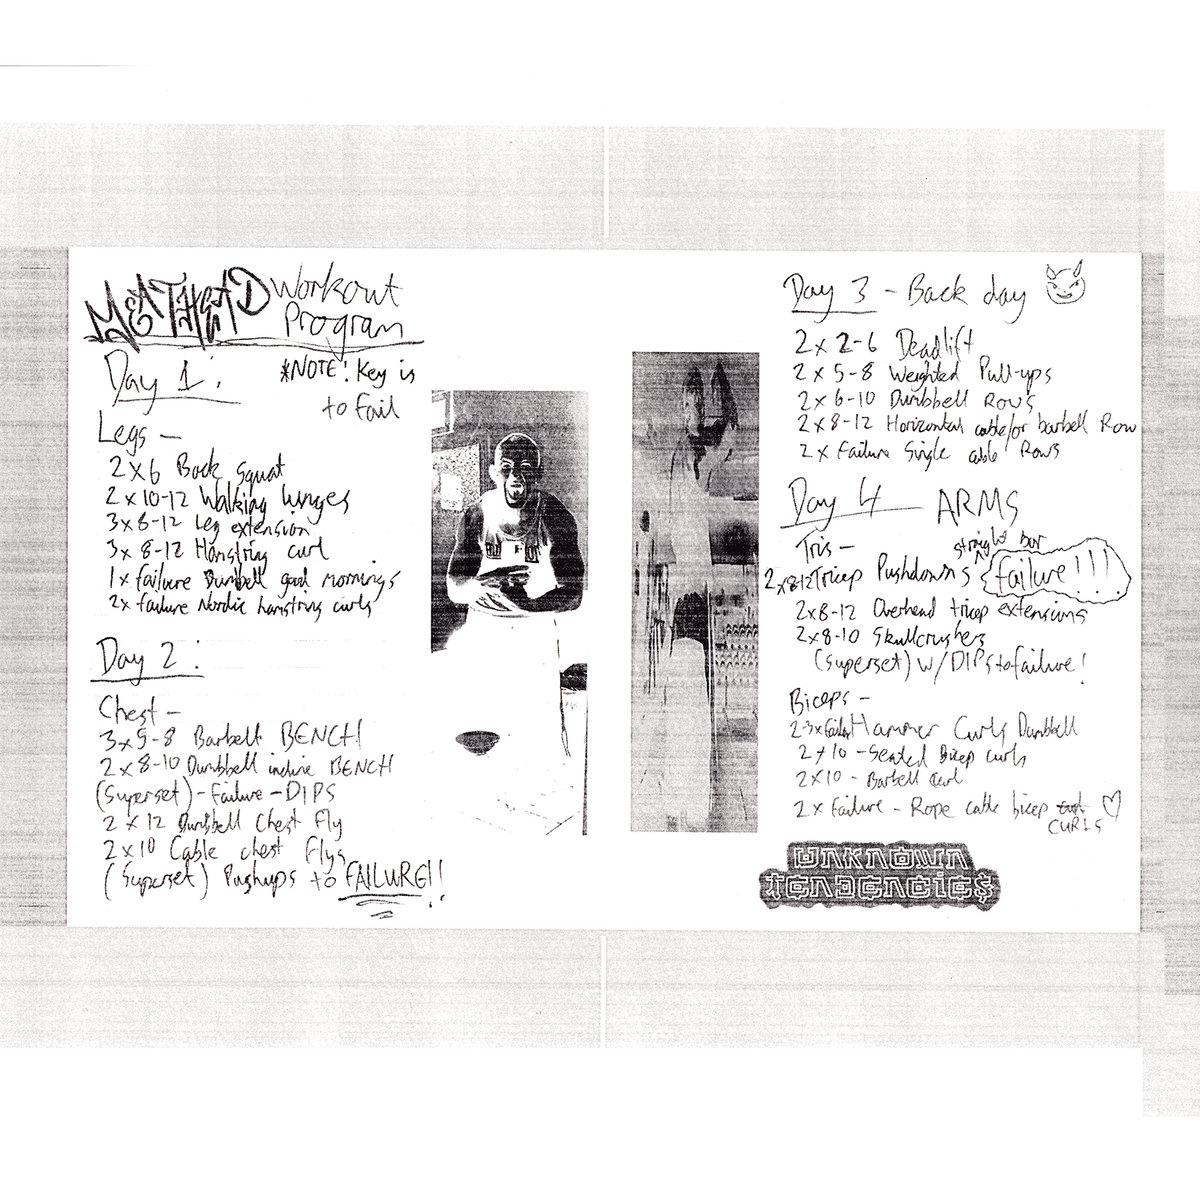 MEATHEAD Workout
Program
*NOTE! Key is
to Fail
Day 1:
Legs –
2x6 Back Squat
2x10-12 Walking lunges
3x8-12 Leg extension
3x8-12 Hamstring curl
1x failure Dumbell good mornings
2x failure Nordic hamstring curls
Day 2:
Chest –
3x5-8 Barbell BENCH
2x8-10 Dumbbell incline BENCH
(Superset) - Failure - DIPS
2x12 Dumbbell Chest Fly
2x10 Cable chest Flys
(Superset) Pushups to FAILURE!!
Day 3 - Back day
2x2-6 Deadlift
2x5-8 Weighted Pull-ups
2x6-10 Dumbbell Rows
2x8-12 Horizontal cable/or barbell Row
2x Failure Single cable Rows
Day 4 ARMS
Tris –
straight bar
2x8-12 Tricep Pushdowns failure!!!
2x8-12 Overhead tricep extensions
2x8-10 Skullcrushers
(superset) w/ DIPS to failure!
Biceps –
2-3x Hammer Curls Dumbbell
2x10 - Seated Bicep curls
2x10 - Barbell Curl
2x Failure - Rope cable bicep
CURLS
UNKNOWN
TENDENCIES